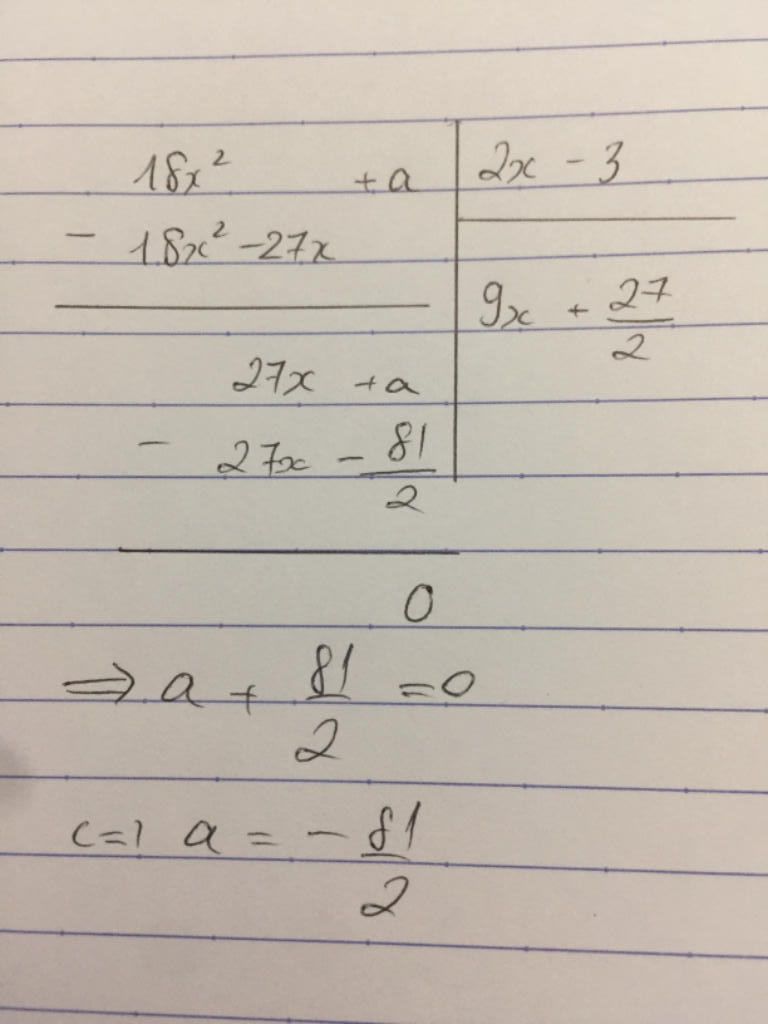 18x² + a | 2x - 3
- 18x² - 27x
9x + 27/2
27x + a
- 27x - 81/2
0
⇒ a + 81/2 = 0
<=> a = - 81/2